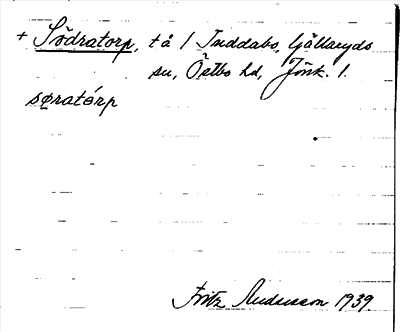 + Södratorp, tå / Inddabo, Gällaryds
sn, Östbo hd, Jönk. l.
sǫratórp
Fritz Andersson 1939.